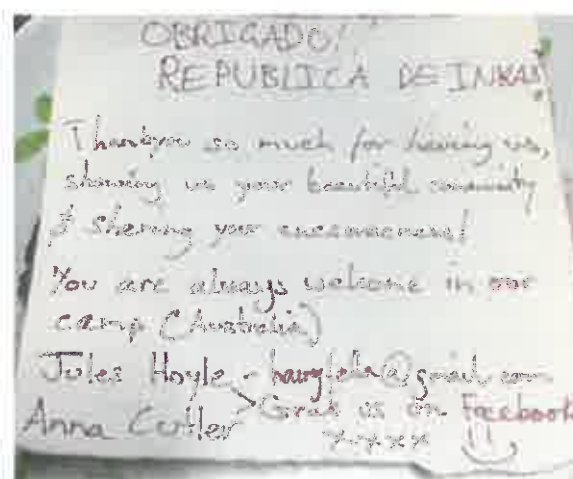 OBRIGADO!
REPUBLICA DE INKAS!
Thankyou so much for having us,
showing us your beautiful community
& sharing your awesomeness!
You are always welcome in our
camp (Australia)
Jules Hoyle - @gmail.com
Anna Cutler Great us on Facebook
xxxxx